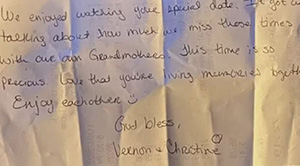 We enjoyed watching your special date. It got us
talking about how much we miss those times
with our own Grandmothers. This time is so
precious. Love that you're living memories together
Enjoy eachother ☺
God bless,
Vernon & Christine ♡